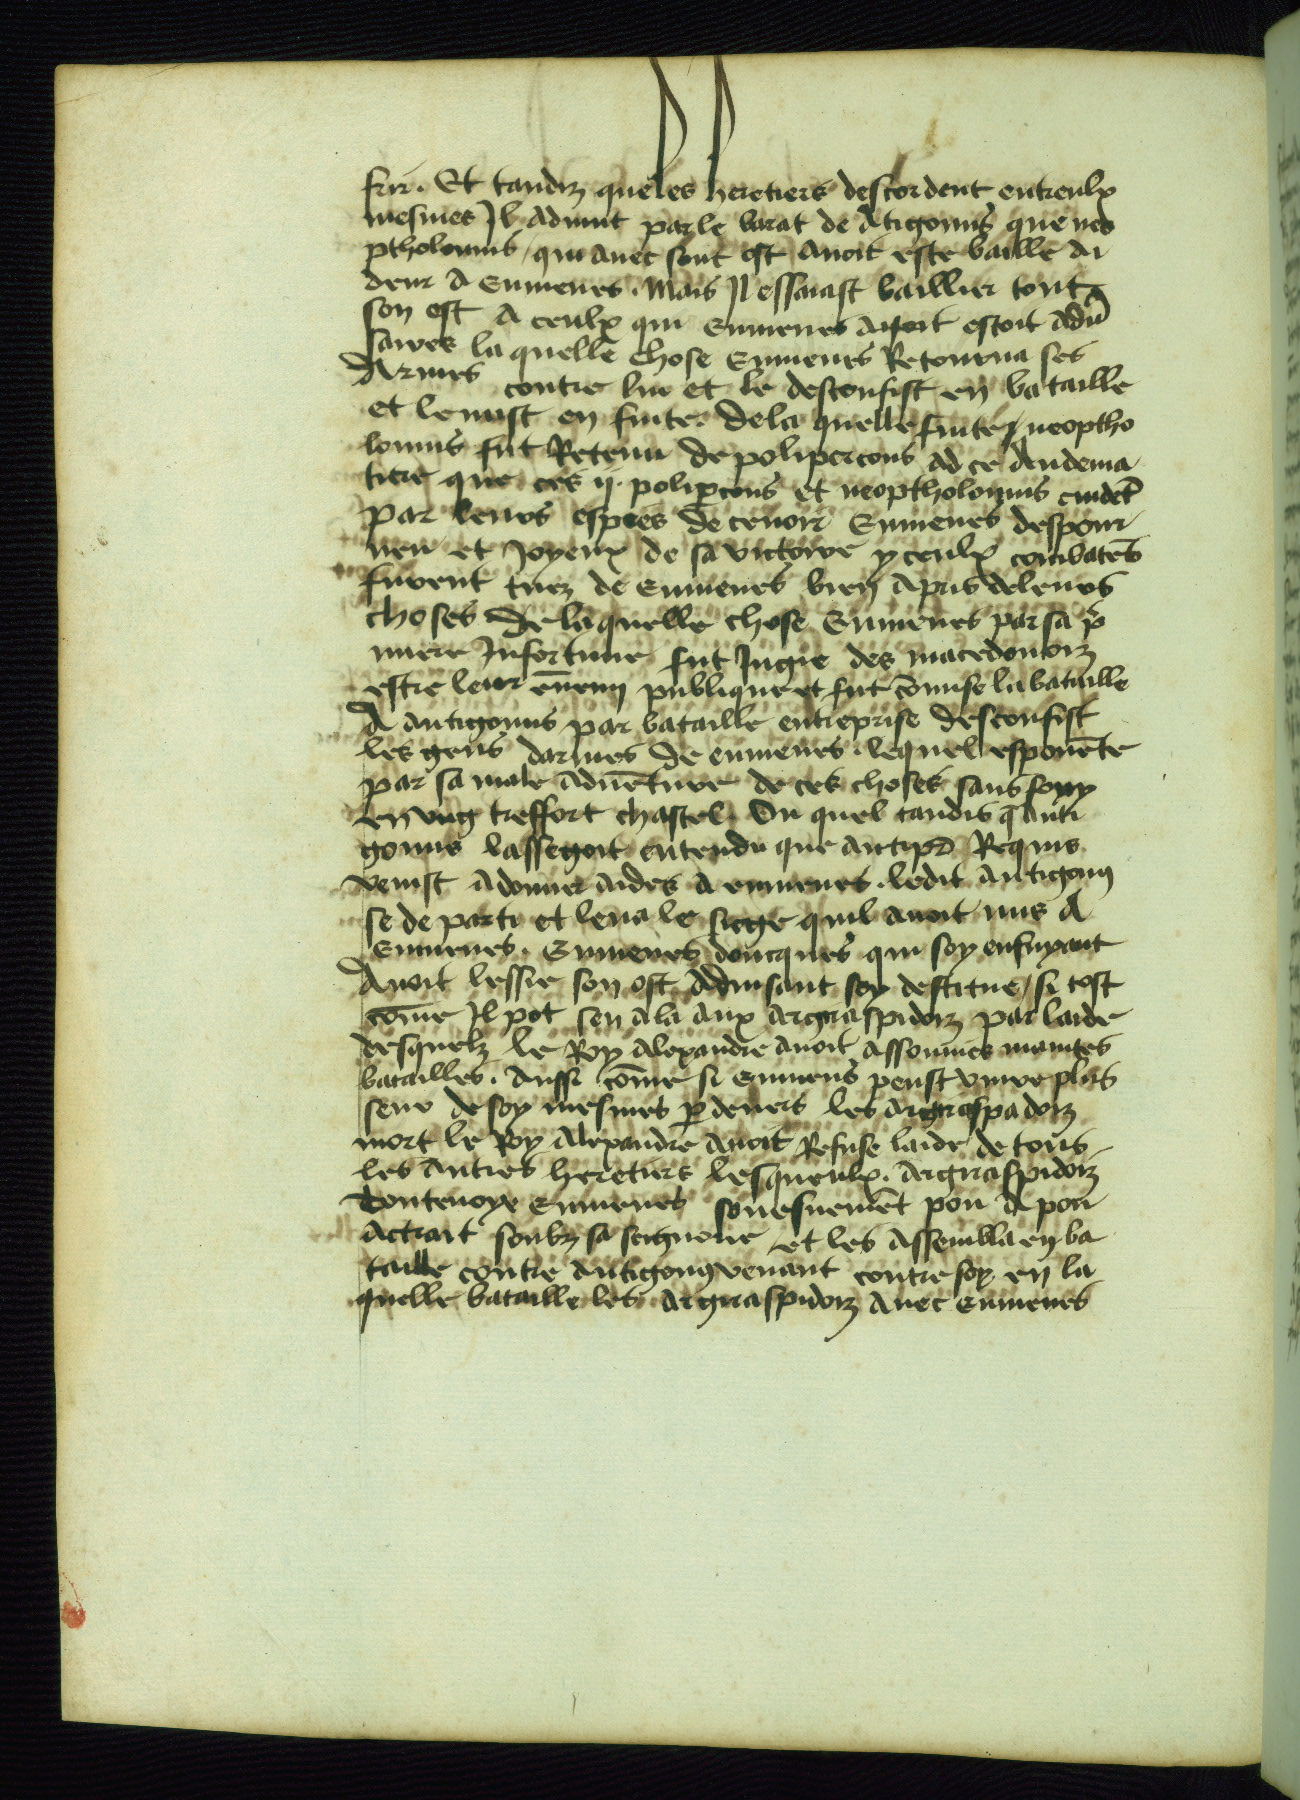 frir. Et tandiz que les heretiers descordent entreulx
mesmes Il advint par le barat de Atigonus que neo
ptholomus / qui avec sont ost avoit este baille ai
deur A Eumenes. Mais Il essaiast baillier tout
son ost A ceulx qui Eumenes avoit estoit adv̄
saires la quelle chose Eumenes Retourna ses
Armes contre lui et le desconfist en bataille
et le mist en fuite. Dela quelle fuite / neoptho
lomus fut Retenu de polipercons ad ce dendema
tiere que ces ij. polip̄cons et neoptholomus cuidēt
par leurs espies de cevoir Eumenes despour
veu et Joyeux de sa victoire yceulx combatēs
furent tuez de Eumenes bien Apris deleurs
choses De laquelle chose Eumenes par sa p̄
miere Infortune fut Jugie des macedonoiz
estre leur ēnemy publique et fut cōmise la bataille
A Antigonus par bataille entreprise desconfist
les gens darmes de eumenes. lequel espouēte
par sa male advēture de ces choses sans fouy
en ung tresfort chastel. Ou quel tandis q̄ anti
gonus lassegoit entendu que Antip̄ Requis
venist A donner aides A eumenes. ledit Antigonꝰ
se de parti et leva le siege quil avoit mis A
Eumenes. Eumenes doncques qui soy enfuyant
Avoit lessie son ost Advisant soy destitue / si tost
cōme Il pot sen ala aux Argiraspidoiz par laide
desquelz le Roy Alexandre avoit assommes maintes
batailles. Aussi cōme si Eumenes peust vivre plus
seur de soy mesmes p̄ devers les Argiraspadoiz
mort le Roy Alexandre avoit Refuse laide de tous
les Autres heretiers lesqueulx. Argiraspidoiz
Toutevoye Eumenes souefvemēt pou A pou
Actrait soubz sa seignorie et les assembla en ba
taille contre Antigonꝰ venant contre soy. en la
quelle bataille les Argiraspidoiz avec Eumenes